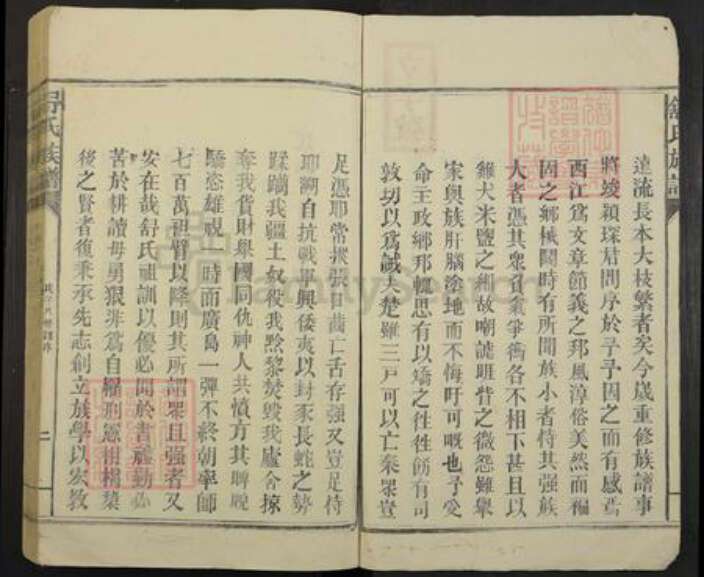 舒氏族譜
遠流長本大枝繁者矣今歲重修族譜事
將竣穎琛君問序於予予因之而有感焉
西江爲文章節義之邦風淳俗美然而褊
因之鄉械鬭時有所聞族小者恃其強族
大者憑其衆召氣爭衡各不相下甚且以
雞犬米鹽之細故嘲謔眥之微怨雖舉
家與族肝腦塗地而不悔吁可慨也予爰
命主政鄉邦輒思有以矯之往往飭有司
敦切以爲誡夫楚雖三戶可以亡秦衆豈
足憑耶常摐張日齒亡舌存强又豈足恃
耶溯自抗戰軍興倭夷以封豕長蛇之勢
蹂躪我疆土奴役我黔黎焚毀我廬舍掠
奪我貨財舉國同仇神人共憤方其睥睨
驕恣雄視一時而廣島一彈不終朝率師
七百萬袒臂以降則其所謂衆且强者又
安在哉舒氏祖訓以優必閑於書禮勤必
苦於耕讀毋勇狠非爲自罹刑憲相搆桀
後之賢者復秉承先志創立族學以宏敎
舒氏族譜
二